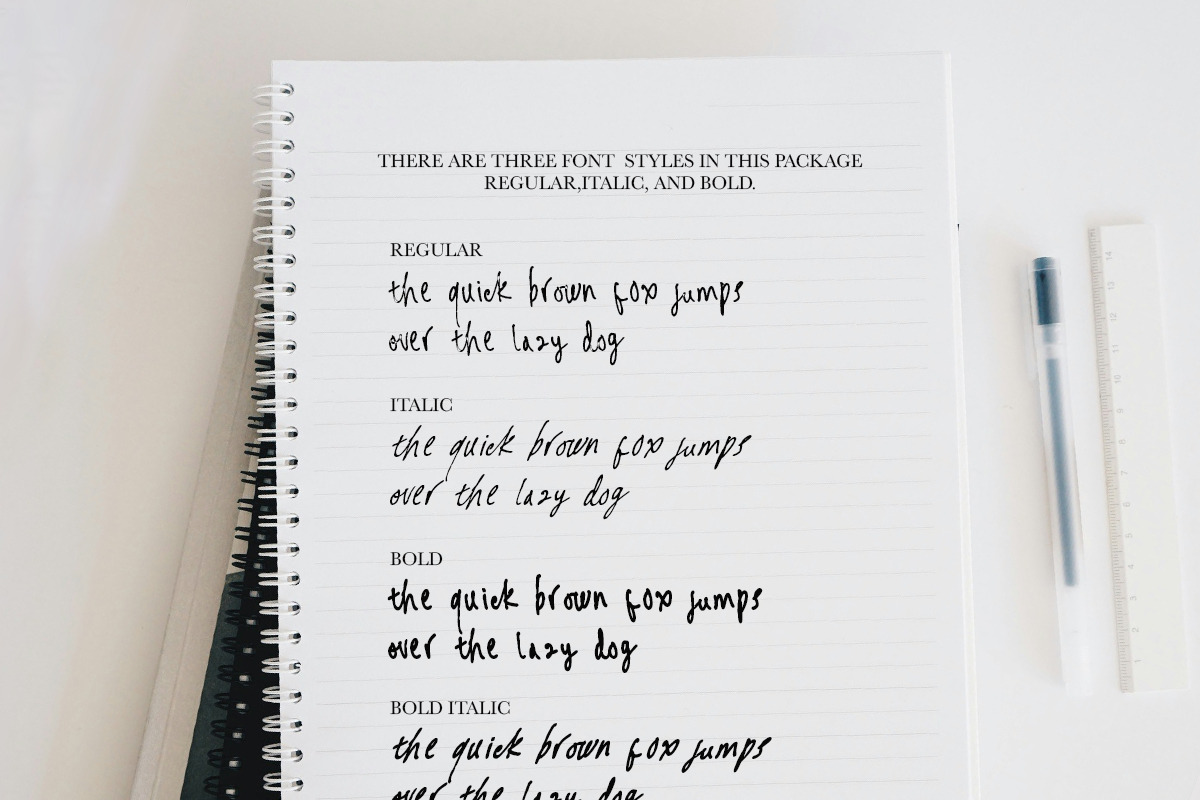 THERE ARE THREE FONT STYLES IN THIS PACKAGE
REGULAR,ITALIC, AND BOLD.
REGULAR
the quick brown fox jumps
over the lazy dog
ITALIC
the quick brown fox jumps
over the lazy dog
BOLD
the quick brown fox jumps
over the lazy dog
BOLD ITALIC
the quick brown fox jumps
over the lazy dog
14
13
12
11
10
9
8
7
6
5
4
3
2
1